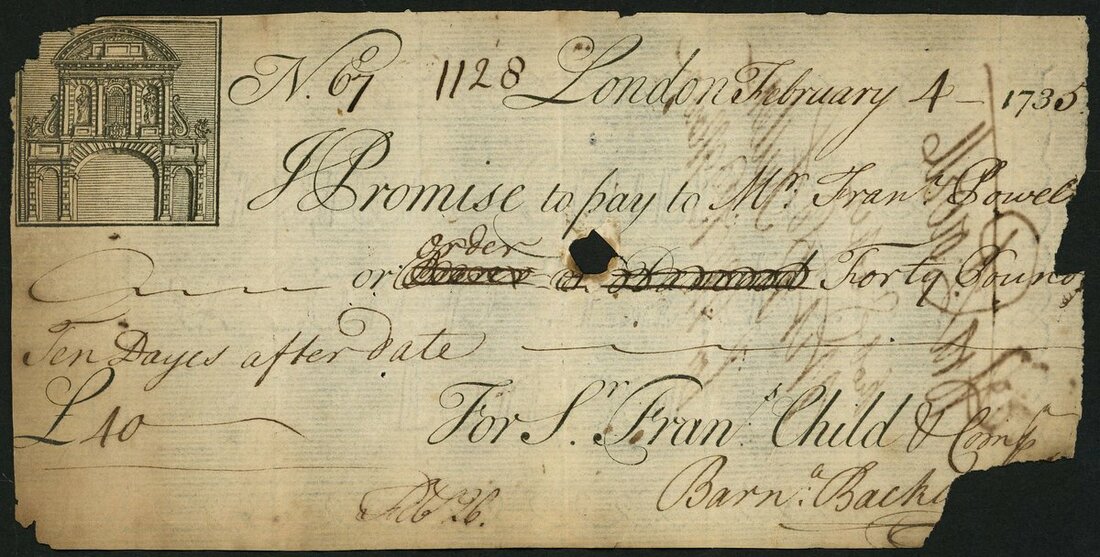 No. 67 1128 London February 4 - 1735
I Promise to pay to Mr. Fran.s Powel
order
or Bearer on Demand Forty Pound
Ten Dayes after date
£ 40 For Sr. Fran.s Child & Comp.a
Barn.a Back
Feb